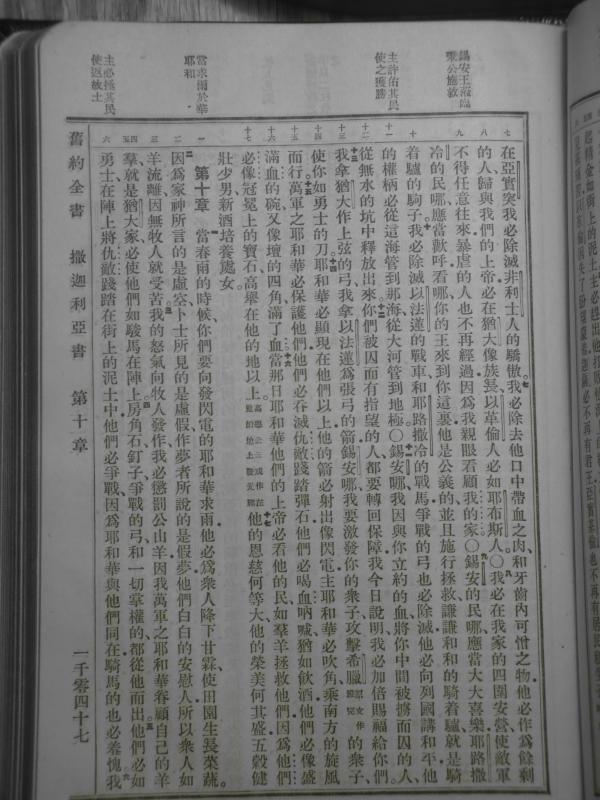 主許佑其民
使之獲勝
主必拯其民
使返故土
七 在亞實突我必除滅非利士人的驕傲我必除去他口中帶血之肉和牙齒內可憎之物他必作爲餘剩
八 的人歸與我們的上帝必在猶大像族長以革倫人必如耶布斯人〇我必在我家的四圍安營使敵軍
九 不得任意往來暴虐的人也不再經過因爲我親眼看顧我的家〇錫安的民哪應當大大喜樂耶路撒
冷的民哪應當歡呼看哪你的王來到你這裏他是公義的並且施行拯救謙謙和和的騎着驢就是騎
十 着驢的駒子我必除滅以法蓮的戰車和耶路撒冷的戰馬爭戰的弓也必除滅他必向列國講和平他
十一 的權柄必從這海管到那海從大河管到地極〇錫安哪我因與你立約的血將你中間被擄而囚的人
十二 從無水的坑中釋放出來你們被囚而有指望的人都要轉回保障我今日說明我必加倍賜福給你們
十三 我拿猶大作上弦的弓我拿以法蓮爲張弓的箭錫安哪我要激發你的衆子攻擊希臘原文作雅完的衆子
十四 使你如勇士的刀耶和華必顯現在他們以上他的箭必射出像閃電主耶和華必吹角乘南方的旋風
十五 而行萬軍之耶和華必保護他們他們必吞滅仇敵踐踏彈石他們必喝血吶喊猶如飲酒他們必像盛
十六 滿血的碗又像壇的四角滿了血當那日耶和華他們的上帝必看他的民如羣羊拯救他們因爲他們
十七 必像冠冕上的寶石高舉在他的地以上高舉云云或作在他的地上發光輝他的恩慈何等大他的榮美何其盛五穀健
壯少男新酒培養處女
一 第十章 當春雨的時候你們要向發閃電的耶和華求雨他必爲衆人降下甘霖使田園生長菜蔬
二 因爲家神所言的是虛空卜士所見的是虛假作夢者所說的是假夢他們白白的安慰人所以衆人如
三 羊流離因無牧人就受苦我的怒氣向牧人發作我必懲罰公山羊因我萬軍之耶和華眷顧自己的羊
四五 羣就是猶大家必使他們如駿馬在陣上房角石釘子爭戰的弓和一切掌權的都從他而出他們必如
六 勇士在陣上將仇敵踐踏在街上的泥土中他們必爭戰因爲耶和華與他們同在騎馬的也必羞愧我
舊約全書 撒迦利亞書 第十章 一千零四十七